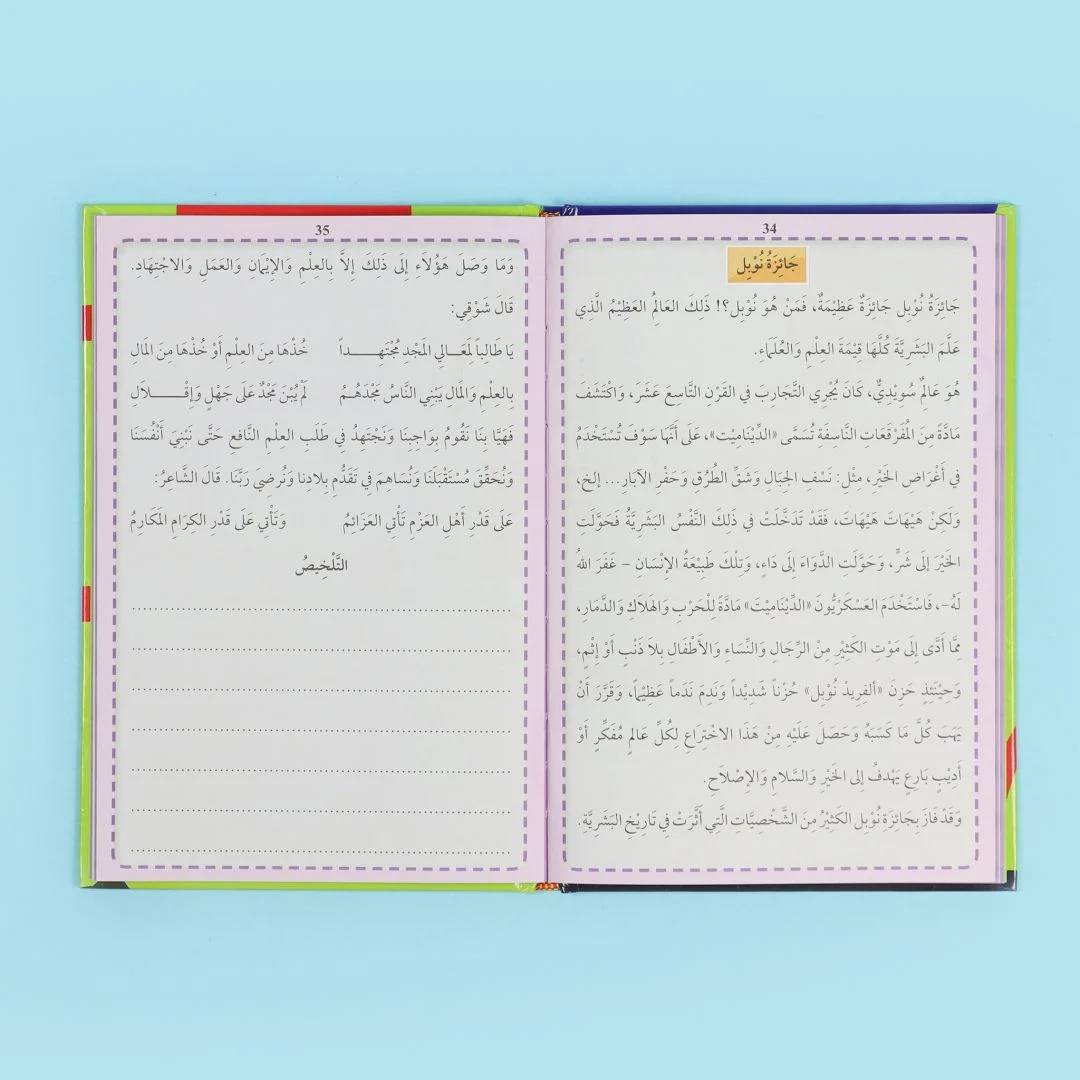 34
جَائِزَةُ نُوْبِل
جَائِزَةُ نُوْبِل جَائِزَةٌ عَظِيْمَةٌ، فَمَنْ هُوَ نُوْبِل؟! ذَلِكَ العَالِمُ العَظِيْمُ الَّذِي
عَلَّمَ البَشَرِيَّةَ كُلَّهَا قِيْمَةَ العِلْمِ وَالعُلَمَاءِ.
هُوَ عَالِمٌ سُويْدِيٌّ، كَانَ يُجْرِي التَّجَارِبَ في القَرْنِ التَّاسِعَ عَشَرَ، وَاكْتَشَفَ
مَادَّةً مِنَ المُفَرْقَعَاتِ النَّاسِفَةِ تُسَمَّى «الدِّيْنَامِيْت»، عَلَى أَنَّهَا سَوْفَ تُسْتَخْدَمُ
في أَغْرَاضِ الخَيْرِ، مِثْلِ: نَسْفِ الجِبَالِ وَشَقِّ الطُّرُقِ وَحَفْرِ الآبَارِ... إلخ،
وَلَكِنْ هَيْهَاتَ هَيْهَاتَ، فَقَدْ تَدَخَّلَتْ في ذَلِكَ النَّفْسُ البَشَرِيَّةُ فَحَوَّلَتِ
الخَيْرَ إِلَى شَرٍّ، وَحَوَّلَتِ الدَّوَاءَ إِلَى دَاءٍ، وَتِلْكَ طَبِيْعَةُ الإِنْسَانِ – غَفَرَ اللهُ
لَهُ–، فَاسْتَخْدَمَ العَسْكَرِيُّونَ «الدِّيْنَامِيْتَ» مَادَّةً لِلْحَرْبِ وَالهَلَاكِ وَالدَّمَارِ،
مِمَّا أَدَّى إِلَى مَوْتِ الكَثِيْرِ مِنْ الرِّجَالِ وَالنِّسَاءِ وَالأَطْفَالِ بِلاَ ذَنْبٍ أَوْ إِثْمٍ،
وَحِيْنَئِذٍ حَزِنَ «ألفِرِيدْ نُوْبِل» حُزْناً شَدِيْداً وَنَدِمَ نَدَماً عَظِيْماً، وَقَرَّرَ أَنْ
يَهَبَ كُلَّ مَا كَسَبَهُ وَحَصَلَ عَلَيْهِ مِنْ هَذَا الاخْتِرَاعِ لِكُلِّ عَالمٍ مُفَكِّرٍ أَوْ
أَدِيْبٍ بَارِعٍ يَهْدفُ إلى الخَيْرِ وَالسَّلامِ وَالإِصْلاَحِ.
وَقَدْ فَازَ بِجَائِزَةِ نُوْبِل الكَثِيْرُ مِنَ الشَّخْصِيَّاتِ الَّتِي أَثَّرَتْ في تَارِيْخِ البَشَرِيَّةِ.
35
وَمَا وَصَلَ هَؤُلاَءِ إِلَى ذَلِكَ إلاَّ بِالعِلْمِ وَالإِيْمَانِ وَالعَمَلِ وَالاجْتِهَادِ.
قَالَ شَوْقِي:
يَا طَالِباً لِمَعَـــالي المَجْدِ مُجْتَهِـــــداً خُذْهَا مِنَ العِلْمِ أَوْ خُذْهَا مِنَ المَالِ
بِالعِلْمِ وَالمَالِ يَبْنِي النَّاسُ مَجْدَهُـمُ لَمْ يُبْنَ مَجْدٌ عَلَى جَهْلٍ وَإِقْـــــلاَلِ
فَهَيَّا بِنَا نَقُومُ بِوَاجِبِنَا وَنَجْتَهِدُ في طَلَبِ العِلْمِ النَّافِعِ حَتَّى نَبْنِيَ أَنْفُسَنَا
وَنُحَقِّقَ مُسْتَقْبَلَنَا وَنُسَاهِمَ في تَقَدُّمِ بِلادِنا وَنُرضِيَ رَبَّنَا. قَالَ الشَّاعِرُ:
عَلَى قَدْرِ أَهْلِ العَزْمِ تَأْتِي العَزَائِمُ وَتَأْتِي عَلَى قَدْرِ الكِرَامِ المَكَارِمُ
التَّلْخِيصُ